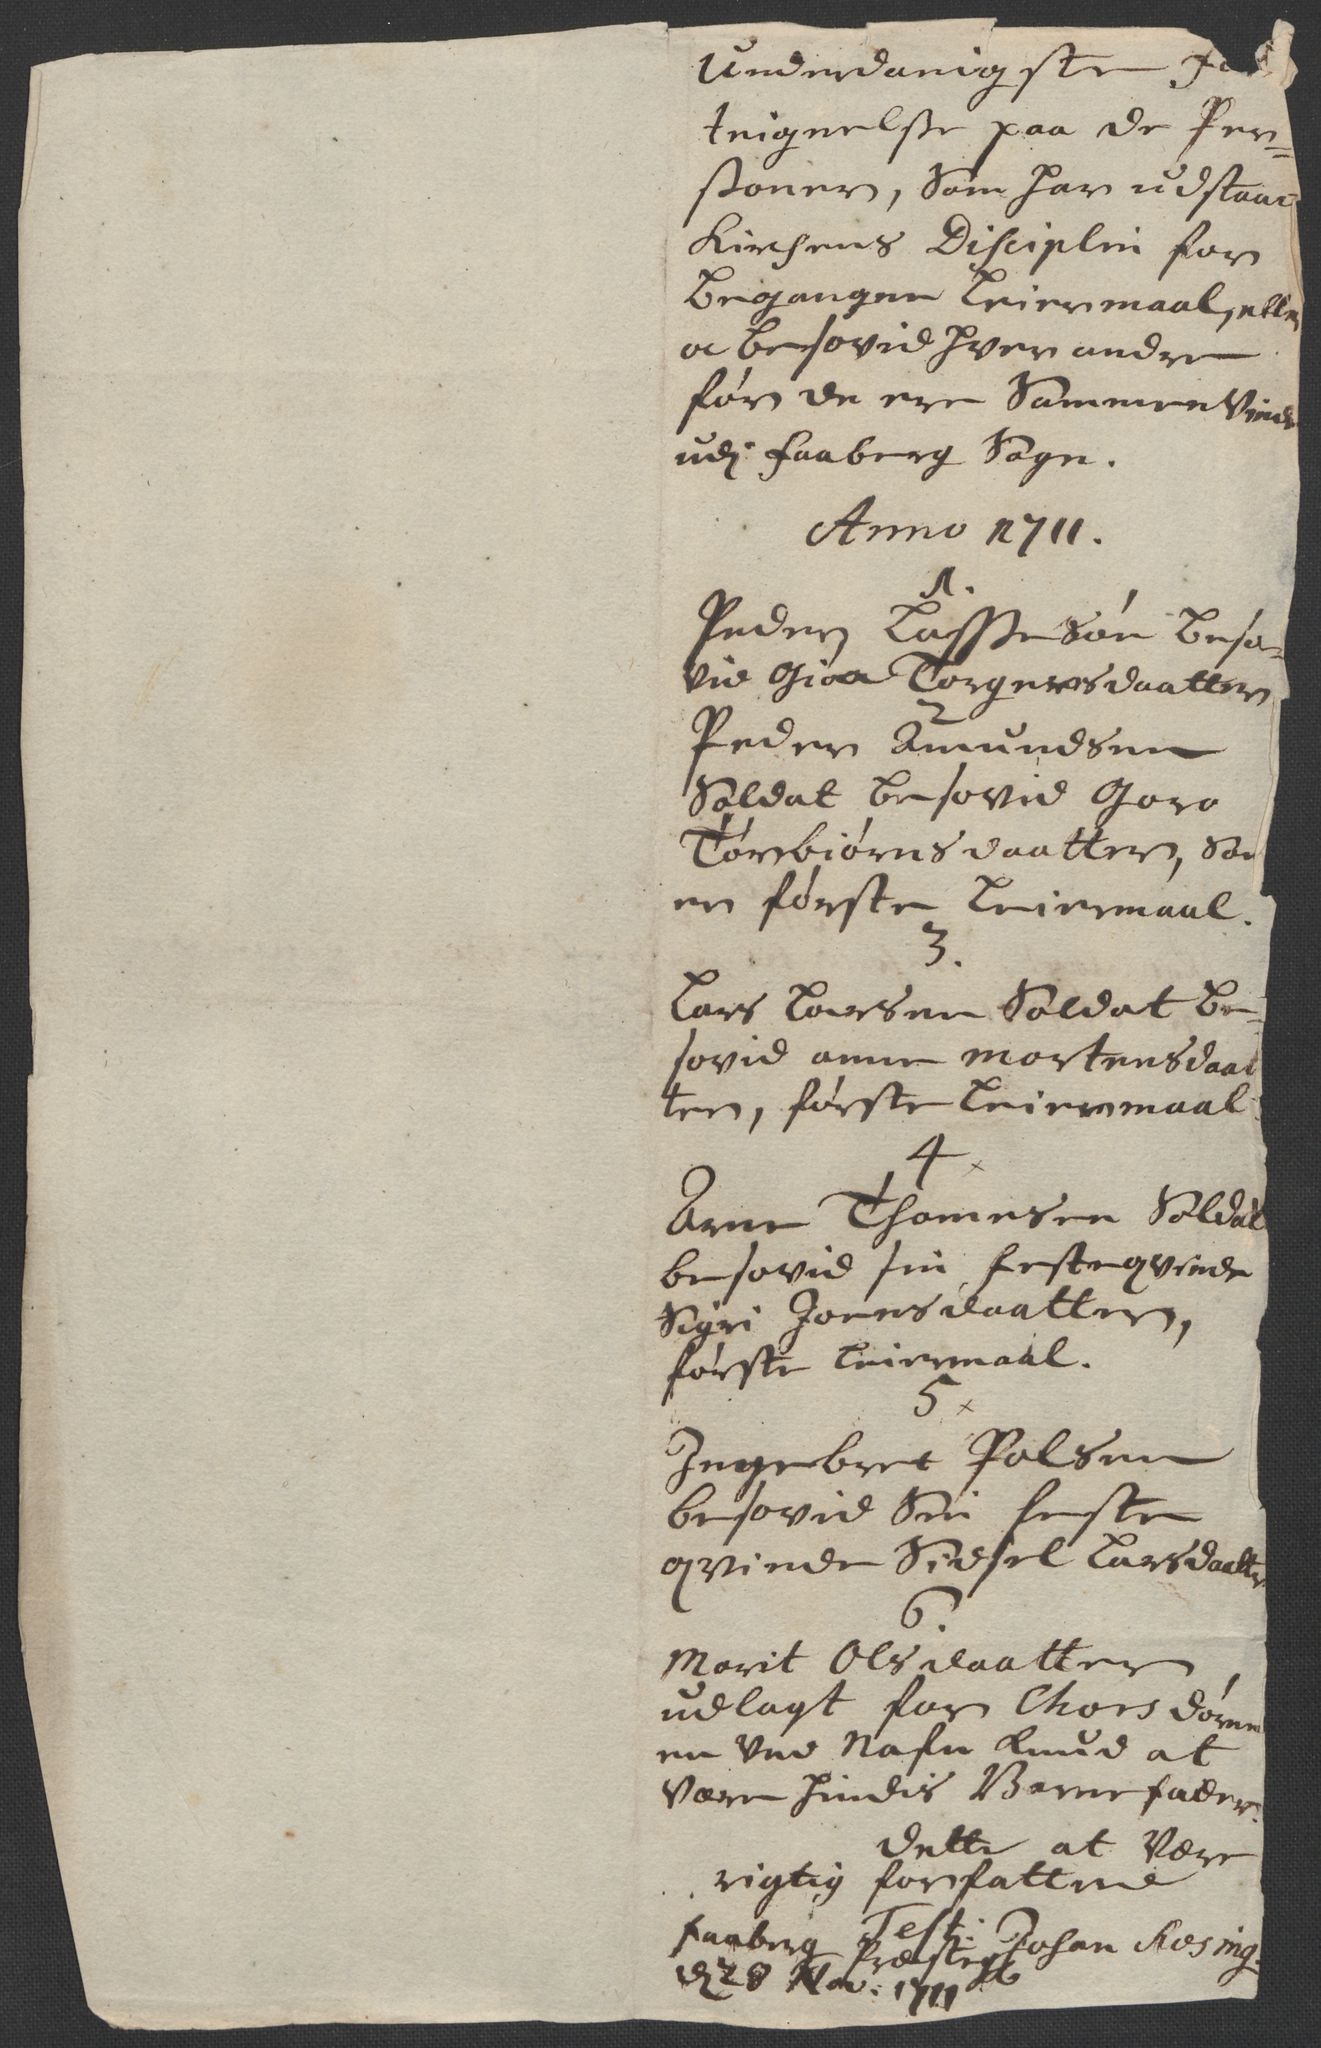 Underdanigste For
teignelsse paa de Per-
soner, Som har udstaaet
Kirchens Disciplin for
begangen Leiermaal, eller
besovid hver andre
før de ere Sammen Viede
udj Faaberg Sogn.
Anno 1711.
1.
Peder Lassesøn beso-
vid Torgersdaatter
2
Peder Amundsen
Soldat besovid Goro
Torbiørnsdaatter, Som
er første Leiermaal.
3.
Lars Larsen Soldat be-
sovid anne Mortensdaat
ter, første Leiermaal
4
Arne Thomesen Soldat
besovid sin festeqvinde
Sigri Joensdaatter,
første Leiermaal.
5
Ingebret Polsen
besovid Sin feste
qvinde Sidsel Larsdaatter
6.
Marit Olsdaatter
udlagt for Chors døren
en ved Nafn Knud at
være hindis Barnefader.
dette at være
rigtig forfatted
Faaberg Test: Johan Rosing.
Præstegb
dj 28 Nov: 1711